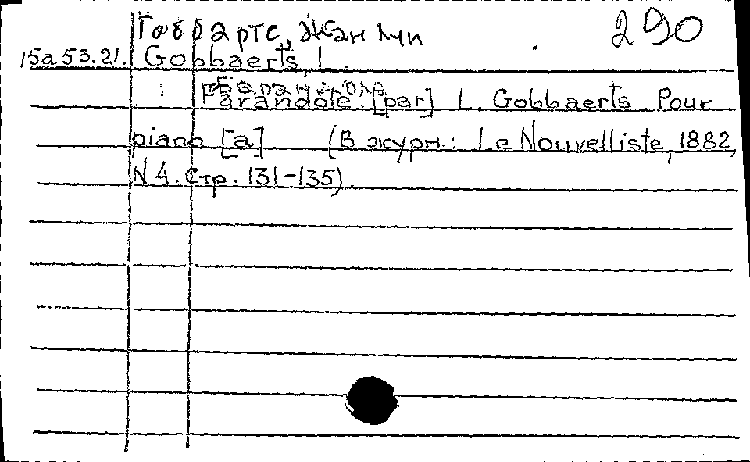 Гоббартс, Жан Луи
290
15а 53.21. Gobbaerts, L.
Farandole [par] L. Gobbaerts Pour
piano [а] (В журн.: Le Nouvelliste, 1882,
N 4. Стр. 131-135).